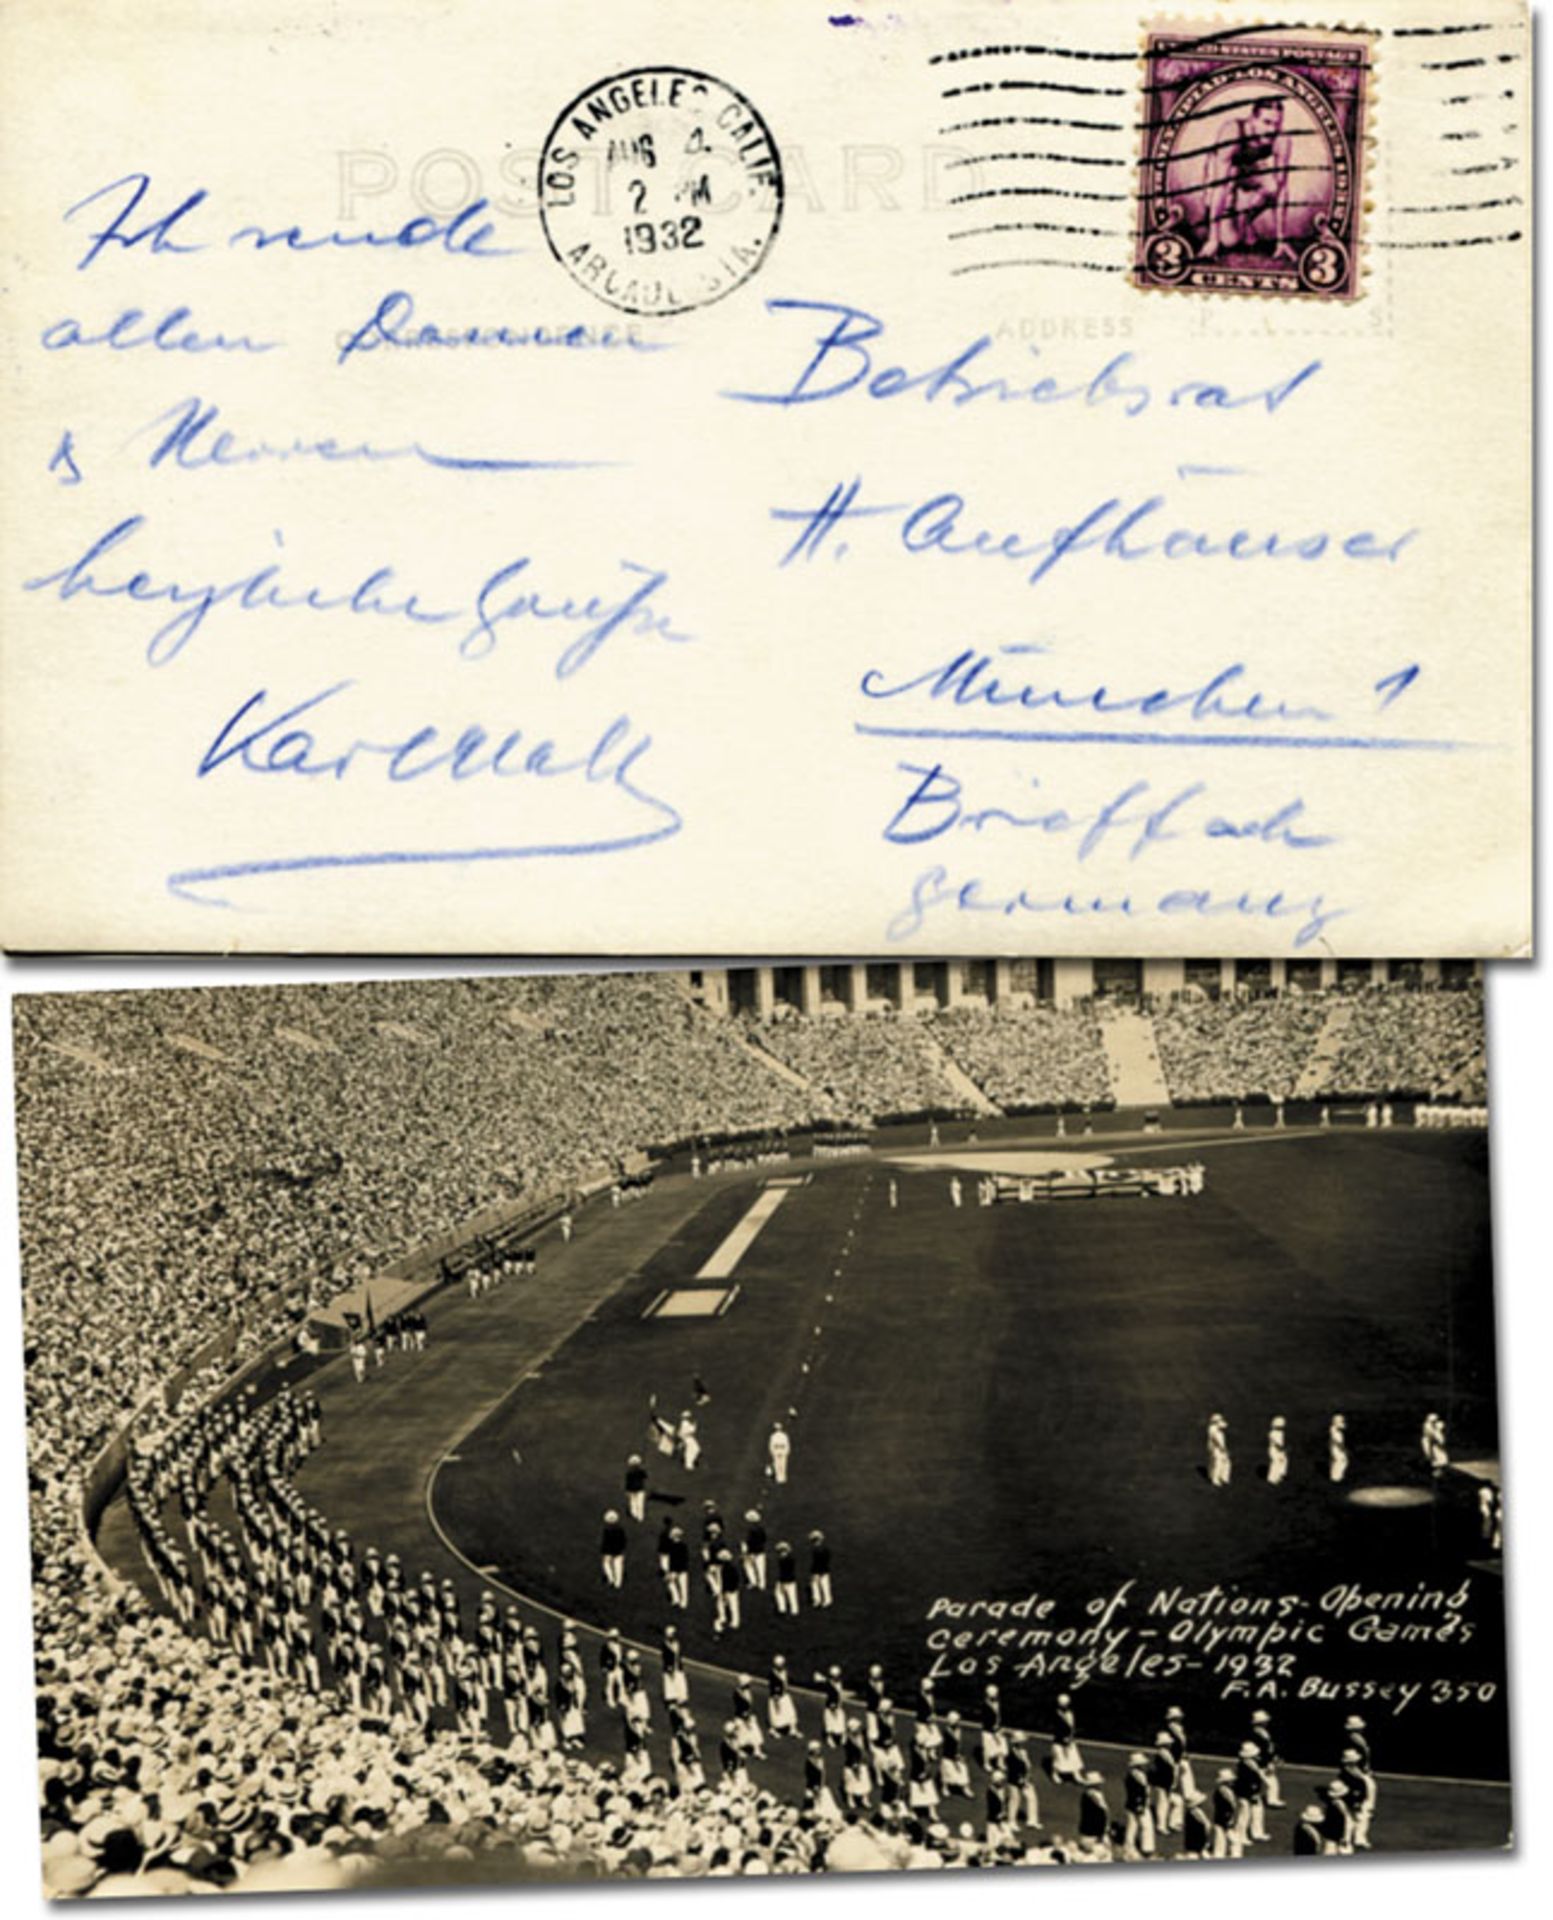 POST CARD
LOS ANGELES, CALIF.
AUG 4
2 PM
1932
ARCADE STA.
UNITED STATES POSTAGE
OLYMPIAD LOS ANGELES
3 CENTS 3
Ich sende
allen Damen
& Herren
herzliche Grüße
Karl
CORRESPONDENCE
ADDRESS
Betriebsrat
H. Aufhäuser
München 1
Brieffach
Germany
Parade of Nations - Opening
Ceremony - Olympic Games
Los Angeles - 1932
F.A. Bussey 350